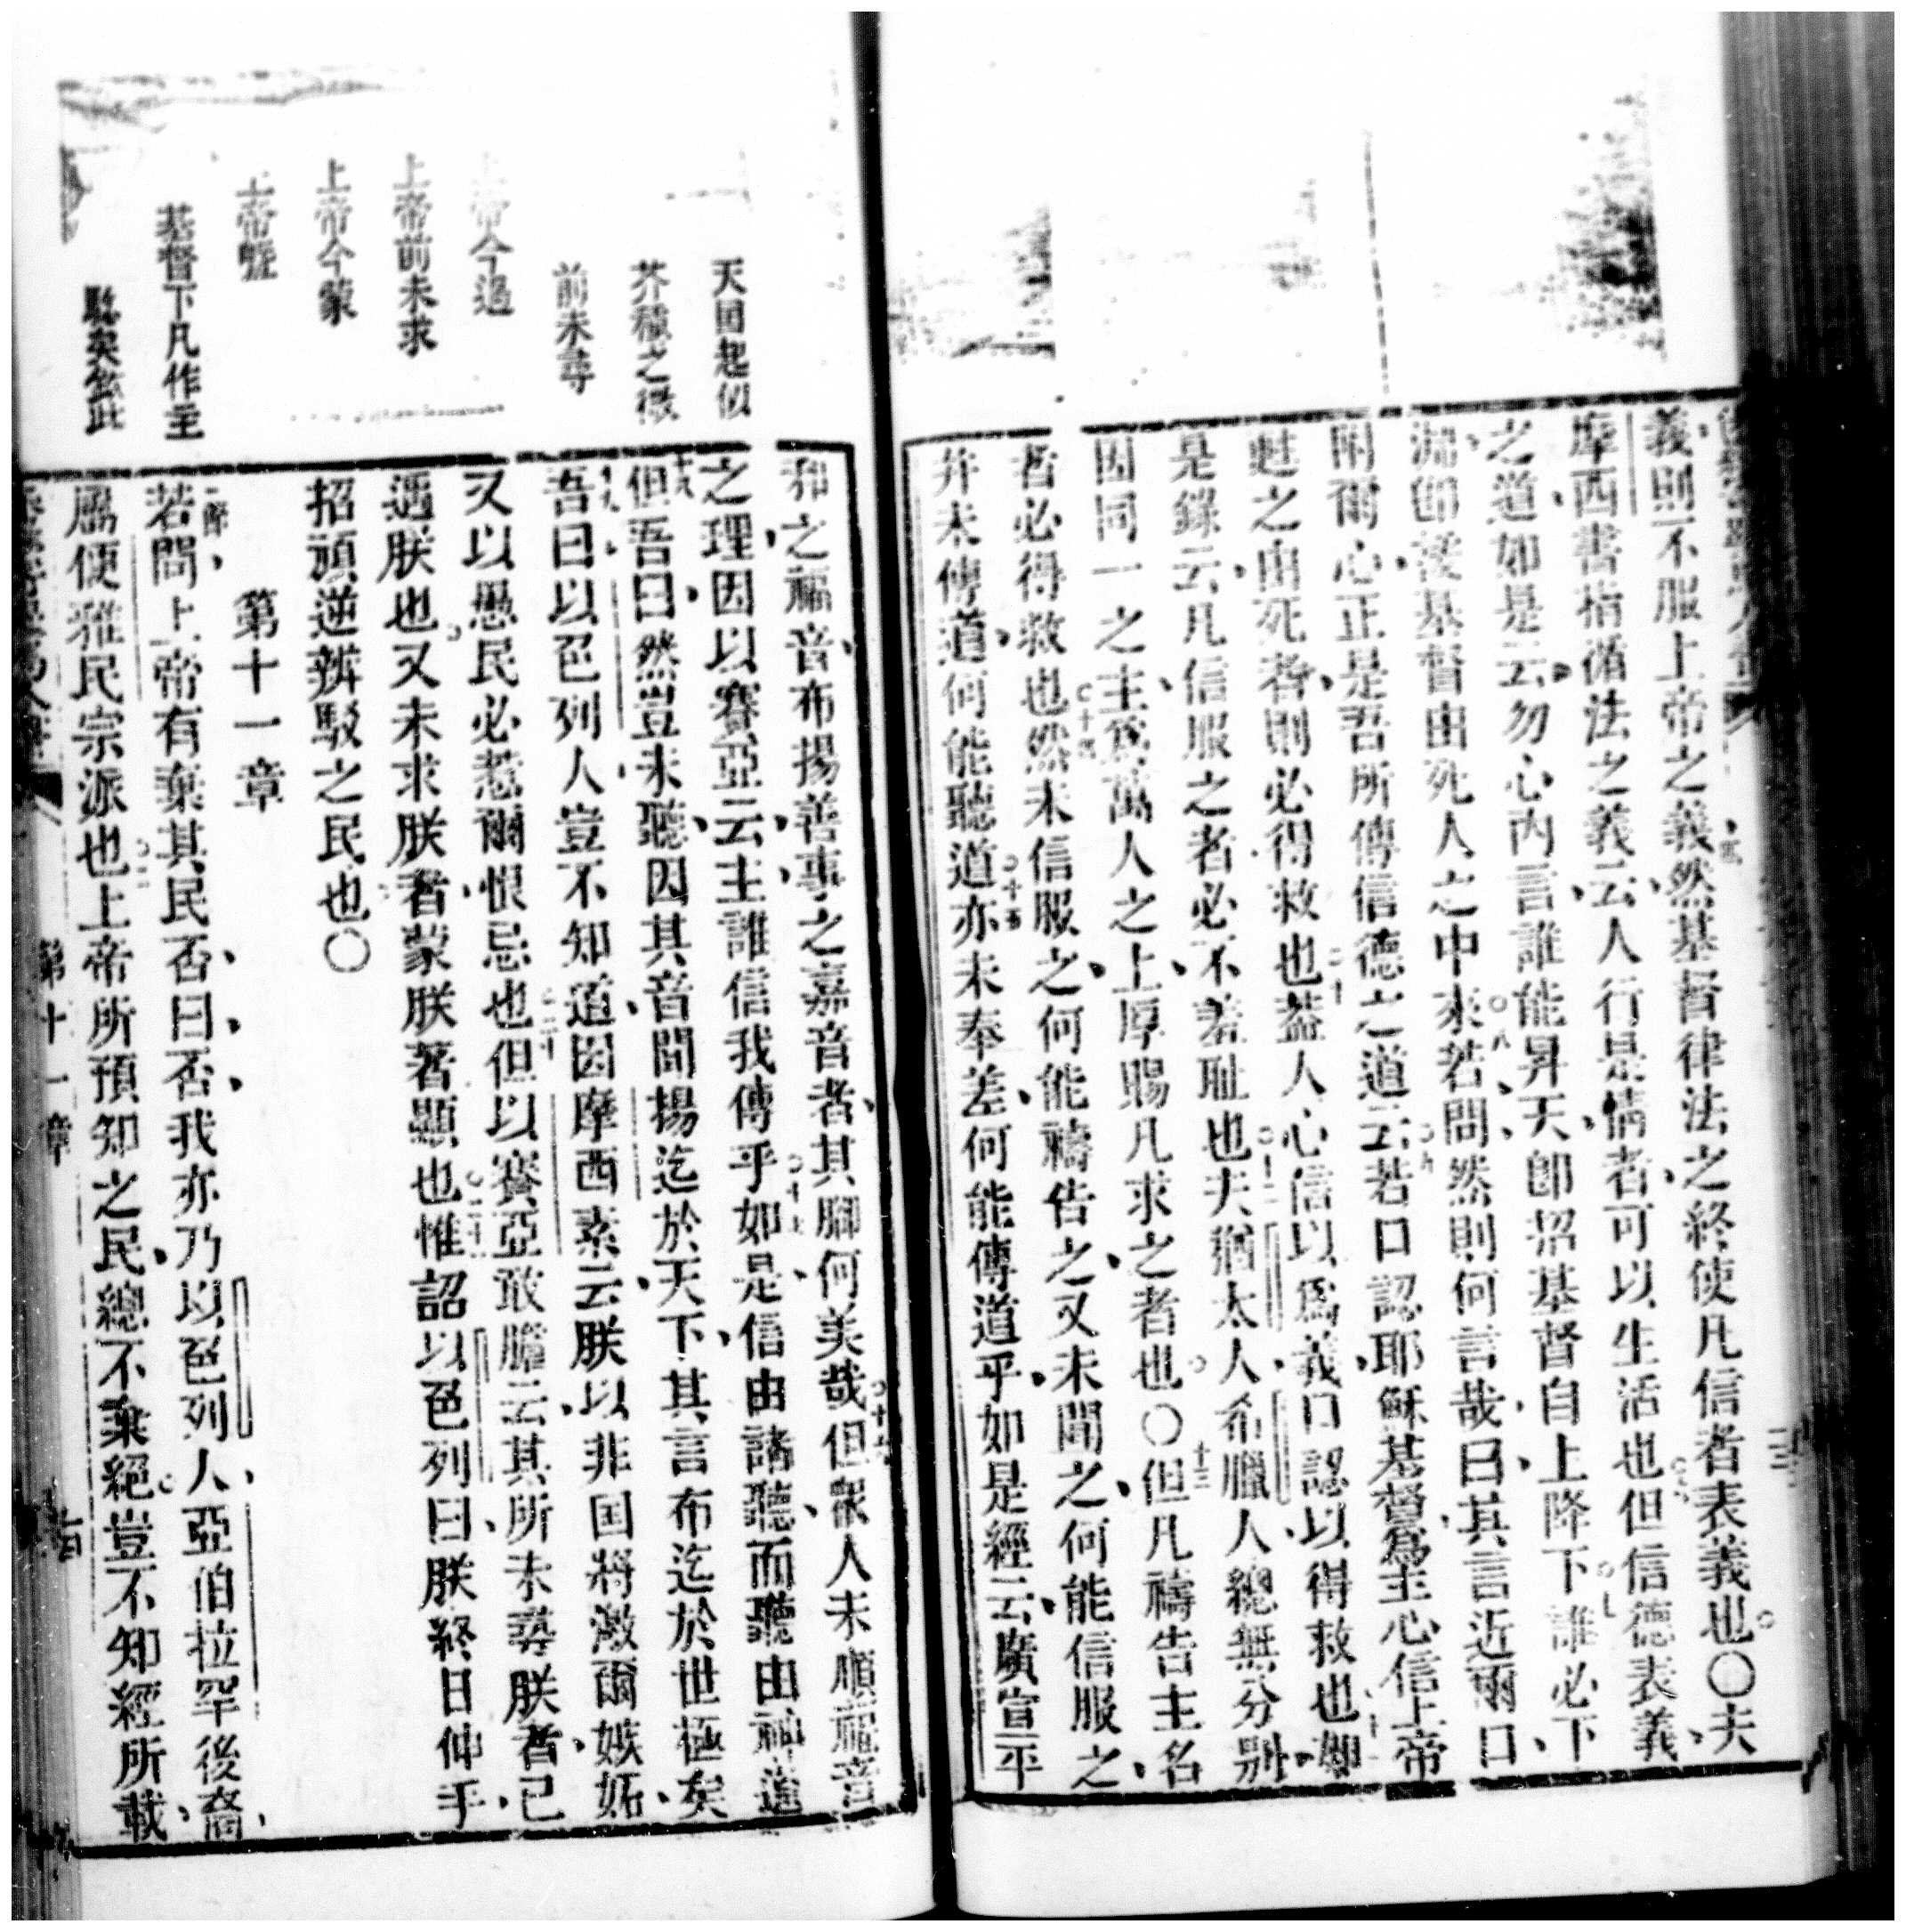 義則不服上帝之義然基督律法之終使凡信者表義也〇夫
摩西書指循法之義云人行是情者可以生活也但信德表義
之道如是云勿心內言誰能昇天卽招基督自上降下誰必下
淵卽接基督由死人之中來若問然則何言哉曰其言近爾口
附爾心正是吾所傳信德之道云若口認耶穌基督爲主心信上帝
甦之由死者則必得救也葢人心信以爲義口認以得救也如
是錄云凡信服之者必不羞耻也夫猶太人希臘人總無分別
因同一之主爲萬人之上厚賜凡求之者也〇但凡禱告主名
者必得救也然未信服之何能禱告之又未聞之何能信服之
并未傳道何能聽道亦未奉差何能傳道乎如是經云廣宣平
天国起似
芥種之微
前未尋
上帝今遏
上帝前未求
上帝今蒙
上帝曁
基督下凡作主
縣矣然此
和之福音布揚善事之嘉音者其腳何美哉但衆人未順福音
之理因以賽亞云主誰信我傳乎如是信由諸聽而聽由神道
但吾曰然豈未聽因其音聞揚迄於天下其言布迄於世極矣
吾曰以色列人豈不知道因摩西素云朕以非国將激爾嫉妬
又以愚民必惹爾恨忌也但以賽亞敢膽云其所未尋朕者已
遇朕也又未求朕者蒙朕著顯也惟詔以色列曰朕終日伸手
招頑逆辨駁之民也〇
第十一章
若問上帝有棄其民否曰否我亦乃以色列人亞伯拉罕後裔
屬便雅民宗派也上帝所預知之民總不棄絕豈不知經所載
第十一章